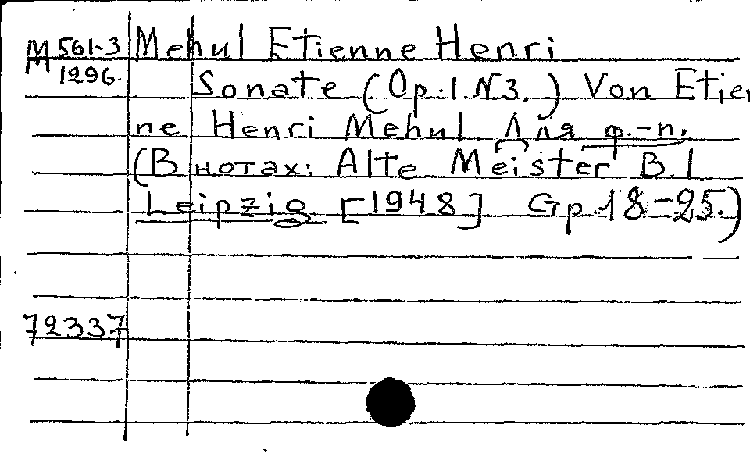 М 561-3 Mehul Etienne Henri
1296 Sonate (Op. 1. N3.) Von Etien
ne Henri Mehul Для ф.-п.
(В нотах: Alte Meister B. I
Leipzig [1948] Gp 18-25.)
72337